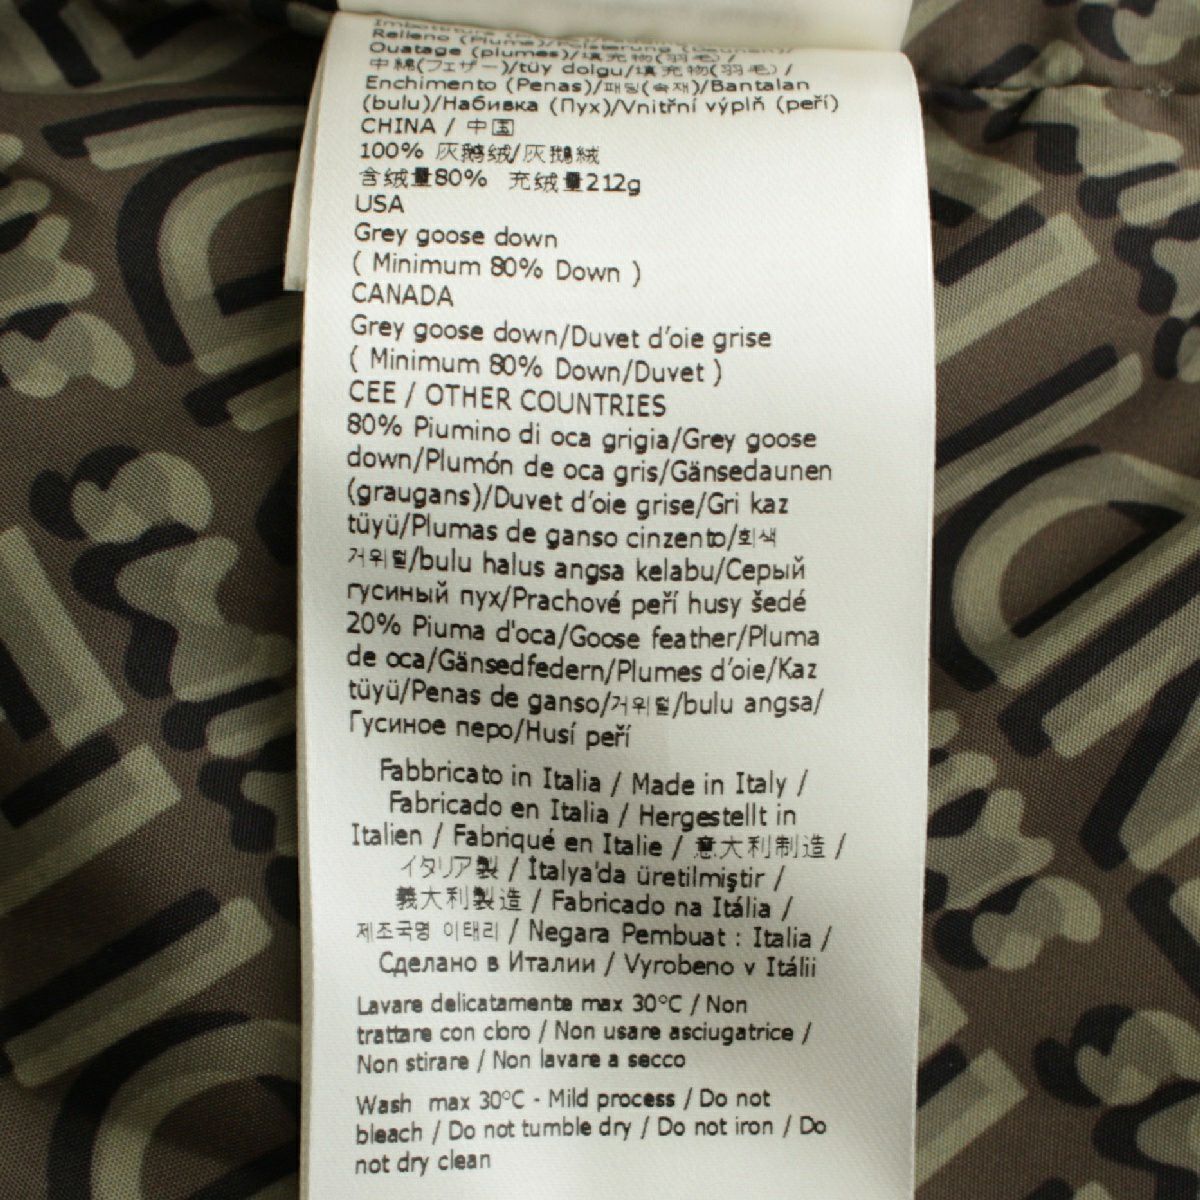 Relleno (Pluma)/Polsterung (Daunen)/
Ouatage (plumes)/填充物(羽毛)/
中綿(フェザー)/tüy dolgu/填充物(羽毛)/
Enchimento (Penas)/패딩(속재)/Bantalan
(bulu)/Набивка (Пух)/Vnitřní výplň (peří)
CHINA / 中国
100% 灰鹅绒/灰鵝絨
含绒量80% 充绒量212g
USA
Grey goose down
( Minimum 80% Down )
CANADA
Grey goose down/Duvet d’oie grise
( Minimum 80% Down/Duvet )
CEE / OTHER COUNTRIES
80% Piumino di oca grigia/Grey goose
down/Plumón de oca gris/Gänsedaunen
(graugans)/Duvet d’oie grise/Gri kaz
tüyü/Plumas de ganso cinzento/회색
거위털/bulu halus angsa kelabu/Серый
гусиный пух/Prachové peří husy šedé
20% Piuma d'oca/Goose feather/Pluma
de oca/Gänsedfedern/Plumes d’oie/Kaz
tüyü/Penas de ganso/거위털/bulu angsa/
Гусиное перо/Husí peří
Fabbricato in Italia / Made in Italy /
Fabricado en Italia / Hergestellt in
Italien / Fabriqué en Italie / 意大利制造 /
イタリア製 / İtalya'da üretilmiştir /
義大利製造 / Fabricado na Itália /
제조국명 이태리 / Negara Pembuat : Italia /
Сделано в Италии / Vyrobeno v Itálii
Lavare delicatamente max 30°C / Non
trattare con cloro / Non usare asciugatrice /
Non stirare / Non lavare a secco
Wash max 30°C - Mild process / Do not
bleach / Do not tumble dry / Do not iron / Do
not dry clean